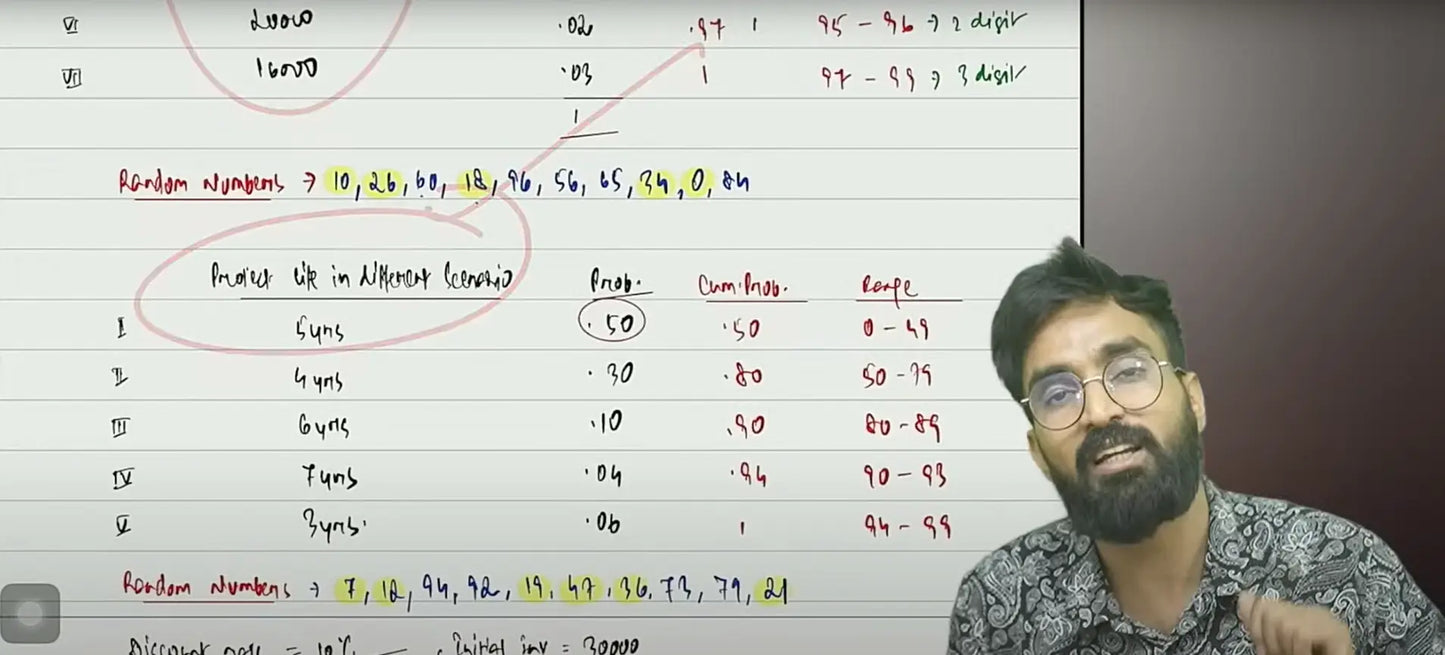 VI 20000 .02 .97 1 95 - 96 → 2 digit
VII 16000 .03 1 97 - 99 → 3 digit
1
Random Numbers → 10, 26, 60, 18, 96, 56, 65, 34, 0, 84
Project life in different Scenario Prob. Cum. Prob. Range
I 5 yrs .50 .50 0 - 49
II 4 yrs .30 .80 50 - 79
III 6 yrs .10 .90 80 - 89
IV 7 yrs .04 .94 90 - 93
V 3 yrs. .06 1 94 - 99
Random Numbers → 7, 12, 94, 92, 19, 47, 36, 73, 79, 21
Discount rate = 10% Initial inv = 30000